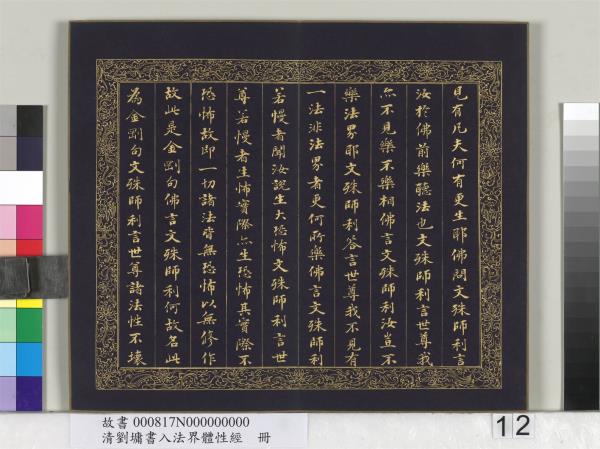 見有凡夫何有更生耶佛問文殊師利言
汝於佛前樂聽法也文殊師利言世尊我
尒不見樂不樂相佛言文殊師利汝豈不
樂法界耶文殊師利答言世尊我不見有
一法非法界者更何所樂佛言文殊師利
若慢者聞汝說生大恐怖文殊師利言世
尊若慢者生怖實際尒生恐怖其實際不
恐怖故即一切諸法皆無恐怖以無修作
故此是金剛句佛言文殊師利何故名此
為金剛句文殊師利言世尊諸法性不壞
故書 000817N000000000
清劉墉書入法界體性經 冊
12